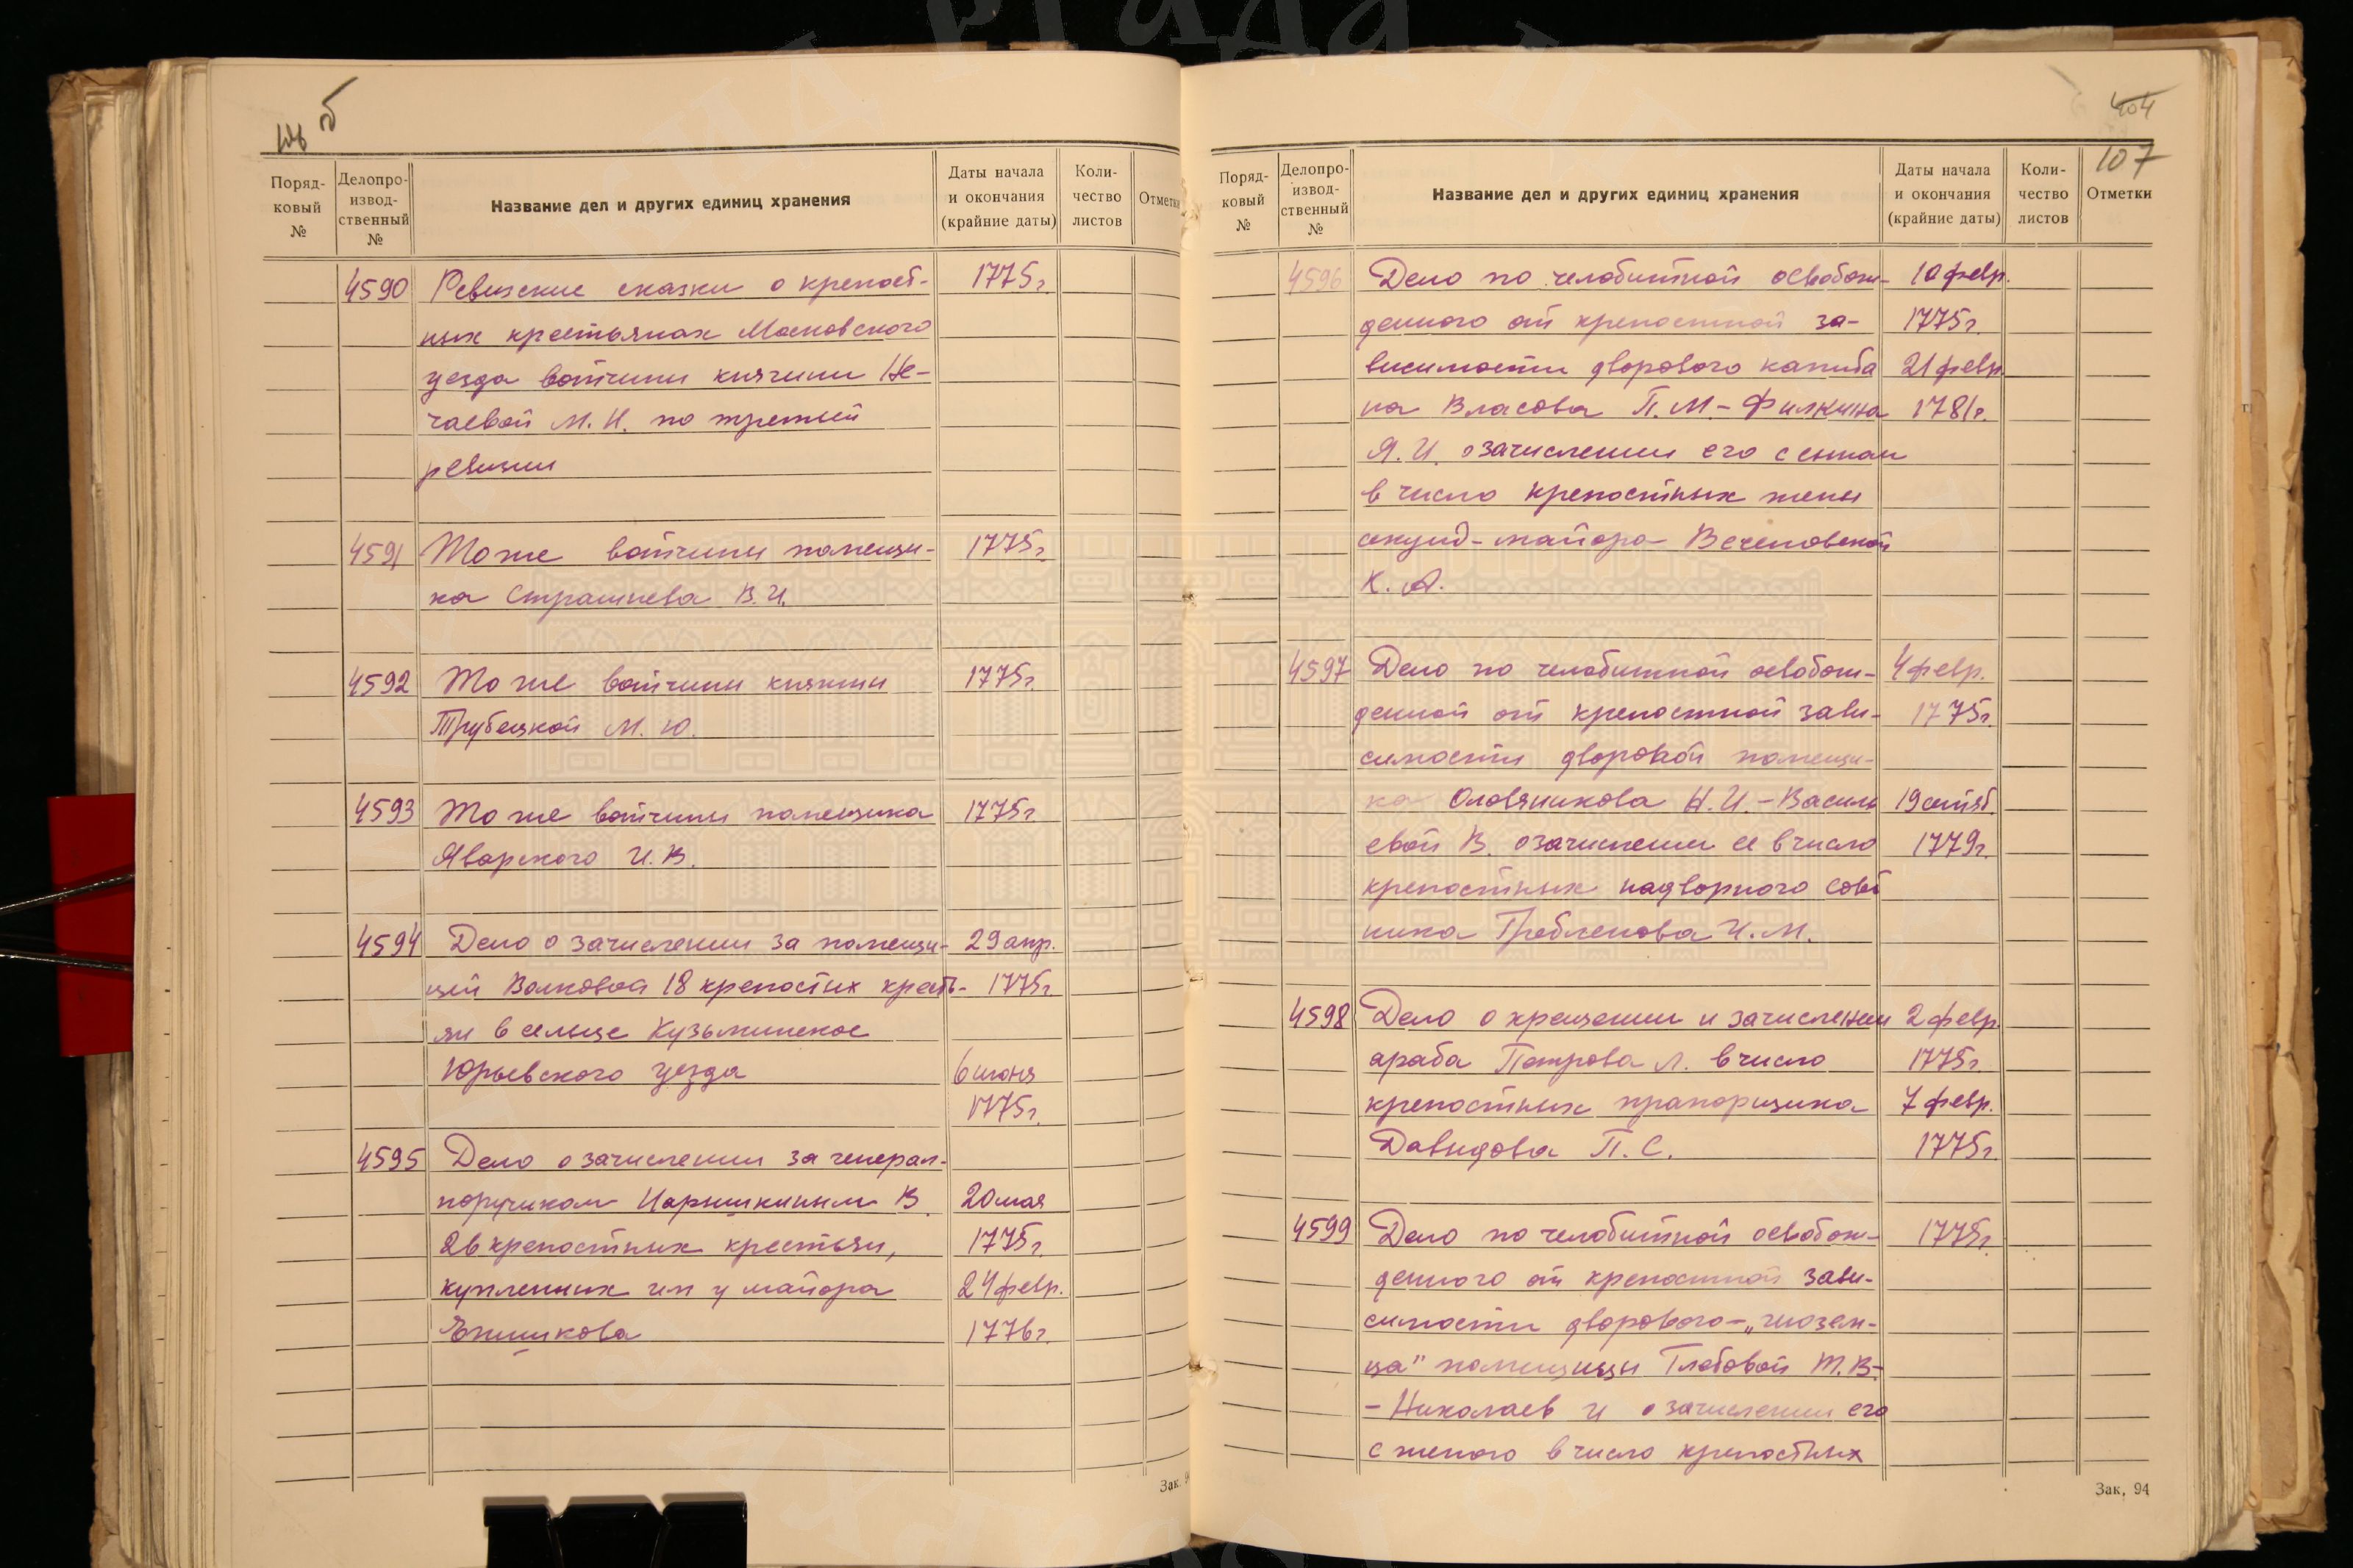 106 б
Поряд-
ковый
№
Делопро-
извод-
ственный
№
Название дел и других единиц хранения
Даты начала
и окончания
(крайние даты)
Коли-
чество
листов
Отметки
4590 Ревизские сказки о крепост- 1775г.
ных крестьянах Московского
уезда вотчины княгини Не-
чаевой М. И. по третьей
ревизии
4591 То же вотчины помещи- 1775г.
ка Страшнева В. И.
4592 То же вотчины княгини 1775г.
Трубецкой М. Ю.
4593 То же вотчины помещика 1775г.
Яворского И. В.
4594 Дело о зачислении за помещи- 29 апр.
цей Волковой 18 крепостных кресть- 1775г.
ян в сельце Кузьминское
Юрьевского уезда 6 июня
1775г.
4595 Дело о зачислении за генерал-
поручиком Нарышкиным В. 20 мая
26 крепостных крестьян, 1775г.
купленных им у майора 24 февр.
1776г.
Зак.
404
107
Поряд-
ковый
№
Делопро-
извод-
ственный
№
Название дел и других единиц хранения
Даты начала
и окончания
(крайние даты)
Коли-
чество
листов
Отметки
4596 Дело по челобитной освобож- 10 февр.
денного от крепостной за- 1775г.
висимости дворового 21 февр.
Власова П. М. - Филкина 1781г.
Я. И. о зачислении его с сыном
в число крепостных жены
секунд-майора
К. А.
4597 Дело по челобитной освобож- 4 февр.
денной от крепостной зави- 1775г.
симости дворовой помещи-
ка Оловяникова Н. И. - Василь 19 сентяб.
евой В. о зачислении ее в число 1779г.
крепостных надворного совет
ника И. М.
4598 Дело о крещении и зачислении 2 февр.
араба Петрова Л. в число 1775г.
крепостных прапорщика 7 февр.
Давыдова П. С. 1775г.
4599 Дело по челобитной освобож- 1775г.
денного от крепостной зави-
симости дворового - „инозем-
ца" помещицы Глебовой Т. В.-
- Николаев И о зачислении его
с женою в число крепостных
Зак, 94